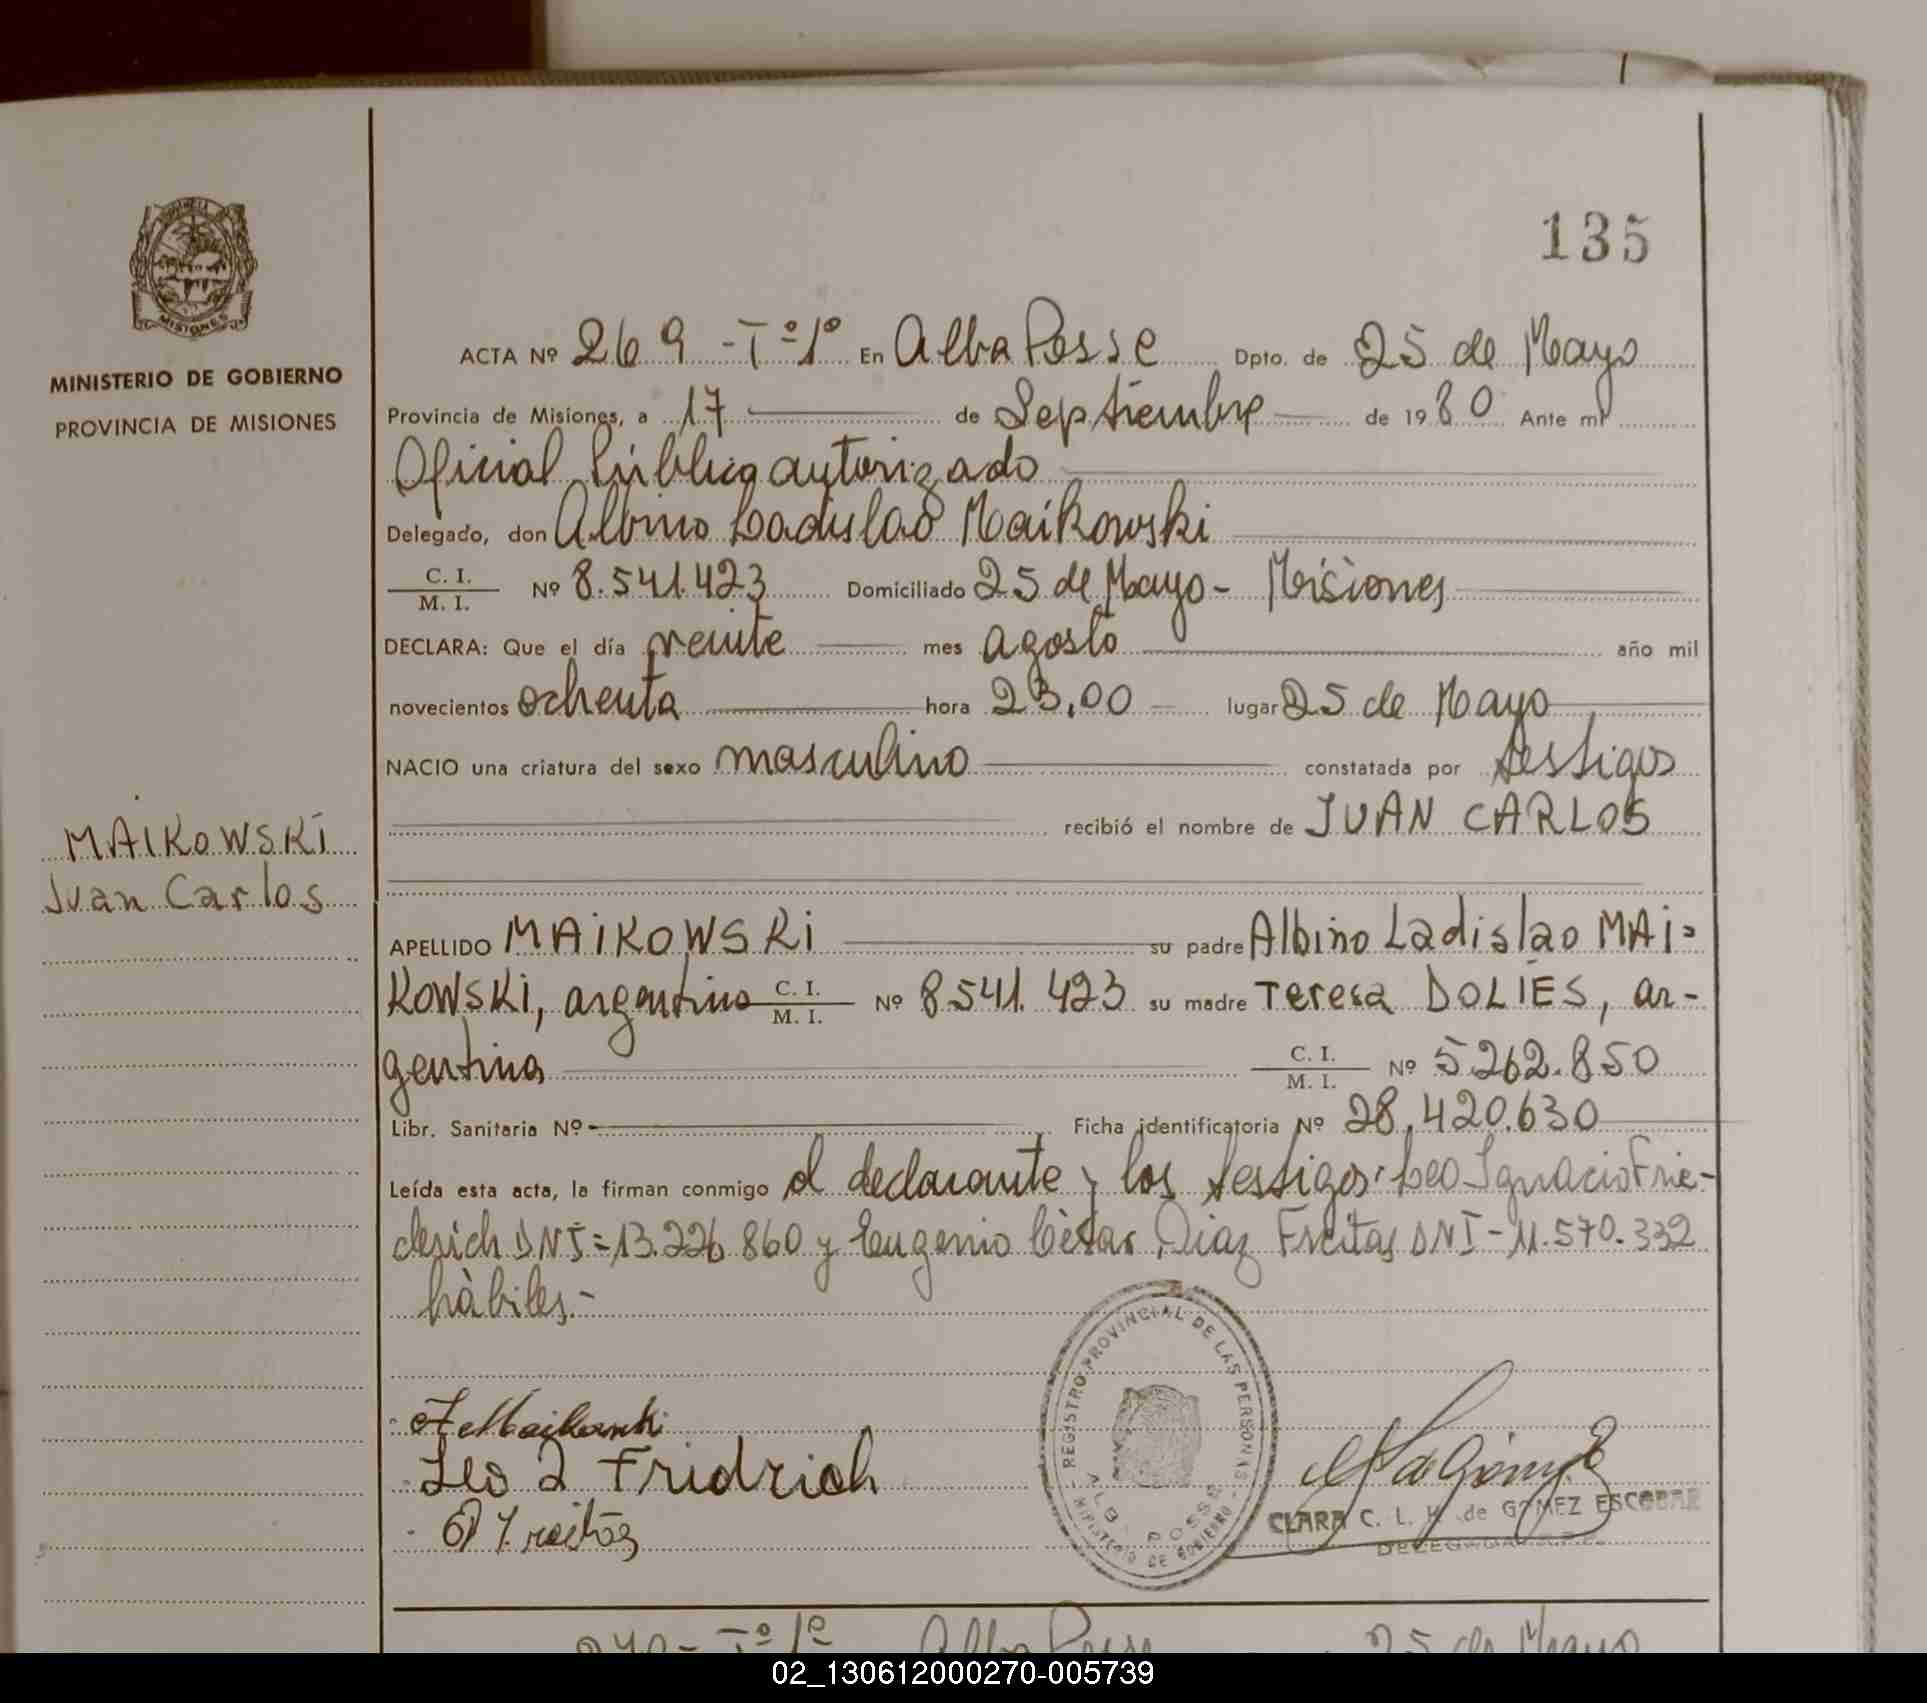 135
MINISTERIO DE GOBIERNO
PROVINCIA DE MISIONES
MAIKOWSKI
Juan Carlos
ACTA Nº 269 - Tº 1º En Alba Posse Dpto. de 25 de Mayo
Provincia de Misiones, a 17 de Septiembre de 1980 Ante mí
Oficial Público autorizado
Delegado, don Albino Ladislao Maikowski
C. I.
M. I. Nº 8.541.423 Domiciliado 25 de Mayo - Misiones
DECLARA: Que el día veinte mes agosto año mil
novecientos ochenta hora 23,00 lugar 25 de Mayo
NACIO una criatura del sexo masculino constatada por testigos
recibió el nombre de JUAN CARLOS
APELLIDO MAIKOWSKI su padre Albino Ladislao MAI=
KOWSKI, argentino C. I. M. I. Nº 8.541.423 su madre Teresa DOLIES, ar-
gentina C. I. M. I. Nº 5.262.850
Libr. Sanitaria Nº Ficha identificatoria Nº 28.420.630
Leída esta acta, la firman conmigo el declarante y los testigos: Leo Ignacio Frie-
derich DNI = 13.226.860 y Eugenio Cèsar Diaz Freitas DNI - 11.570.332
hàbiles.-
A Maikowski
Leo I Fridrich
Freitas
REGISTRO PROVINCIAL DE LAS PERSONAS
ALBA POSSE
MINISTERIO DE GOBIERNO
CLARA C. L. H. de GOMEZ ESCOBAR
DELEGADA
Tº 1º Alba Posse 25 de Mayo
02_130612000270-005739